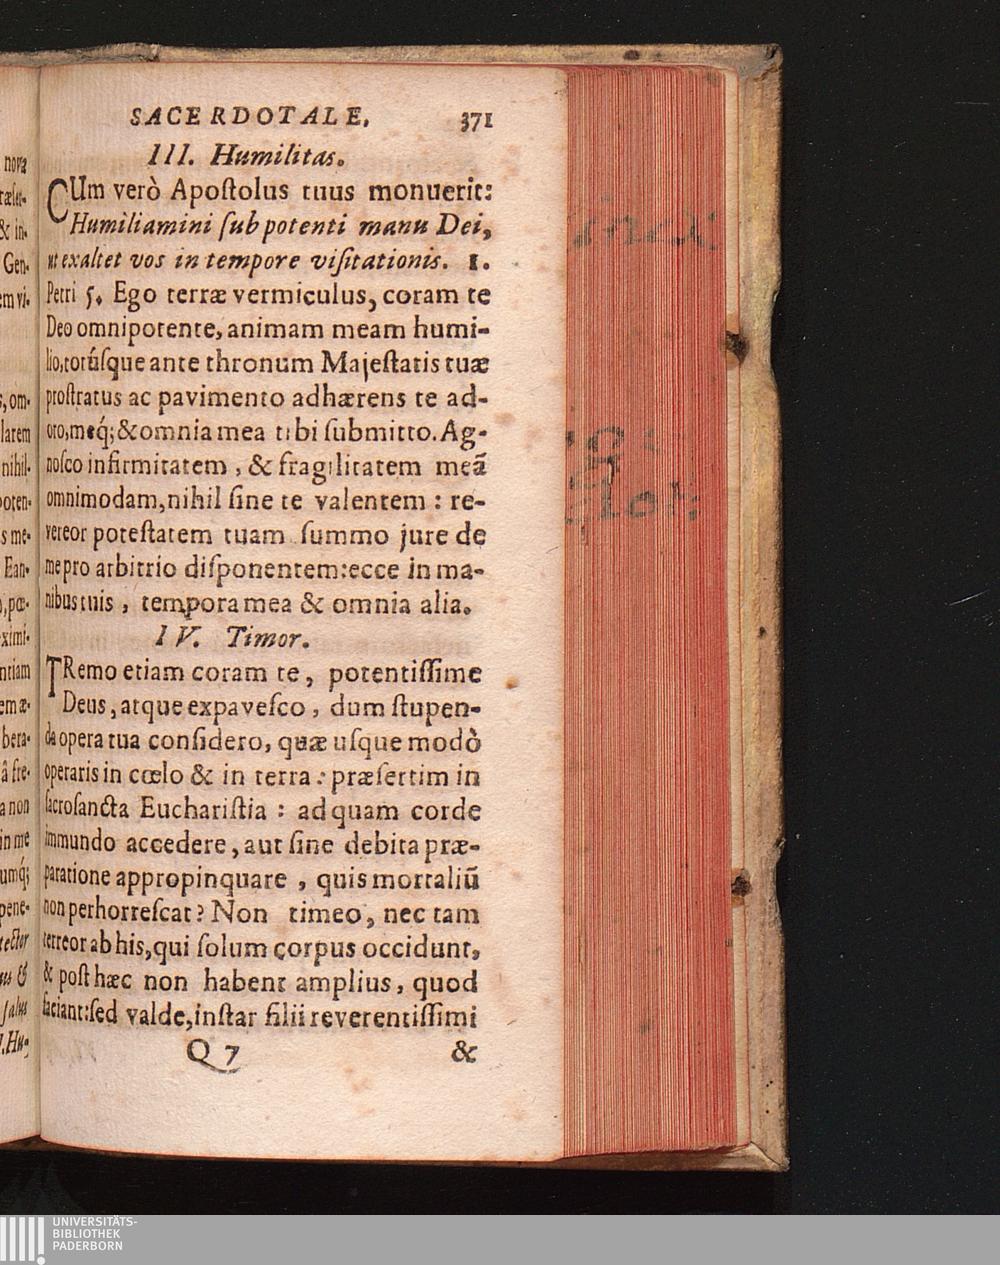 SACERDOTALE. 371
III. Humilitas.
CUm verò Apoſtolus tuus monuerit:
Humiliamini ſub potenti manu Dei,
ut exaltet vos in tempore viſitationis. 1.
Petri 5. Ego terræ vermiculus, coram te
Deo omnipotente, animam meam humi-
lio, totúſque ante thronum Majeſtatis tuæ
proſtratus ac pavimento adhærens te ad-
oro, meq́; & omnia mea tibi ſubmitto. Ag-
noſco infirmitatem, & fragilitatem meã
omnimodam, nihil ſine te valentem: re-
vereor poteſtatem tuam ſummo jure de
me pro arbitrio diſponentem: ecce in ma-
nibus tuis, tempora mea & omnia alia.
IV. Timor.
TRemo etiam coram te, potentiſſime
Deus, atque expaveſco, dum ſtupen-
da opera tua conſidero, quæ uſque modò
operaris in cœlo & in terra: præſertim in
ſacroſancta Euchariſtia: ad quam corde
immundo accedere, aut ſine debita præ-
paratione appropinquare, quis mortaliũ
non perhorreſcat? Non timeo, nec tam
terreor ab his, qui ſolum corpus occidunt,
& poſt hæc non habent amplius, quod
faciant: ſed valde, inſtar filii reverentiſſimi
Q 7 &
nova
& in-
Gen-
em vi-
, om-
larem
nihil-
poten-
s me-
Ean-
, pœ-
ximi-
ntiam
em æ-
bera-
â fre-
a non
in me
umq́;
pene-
tector
us &
ſalus
.Hu-
UNIVERSITÄTS-
BIBLIOTHEK
PADERBORN